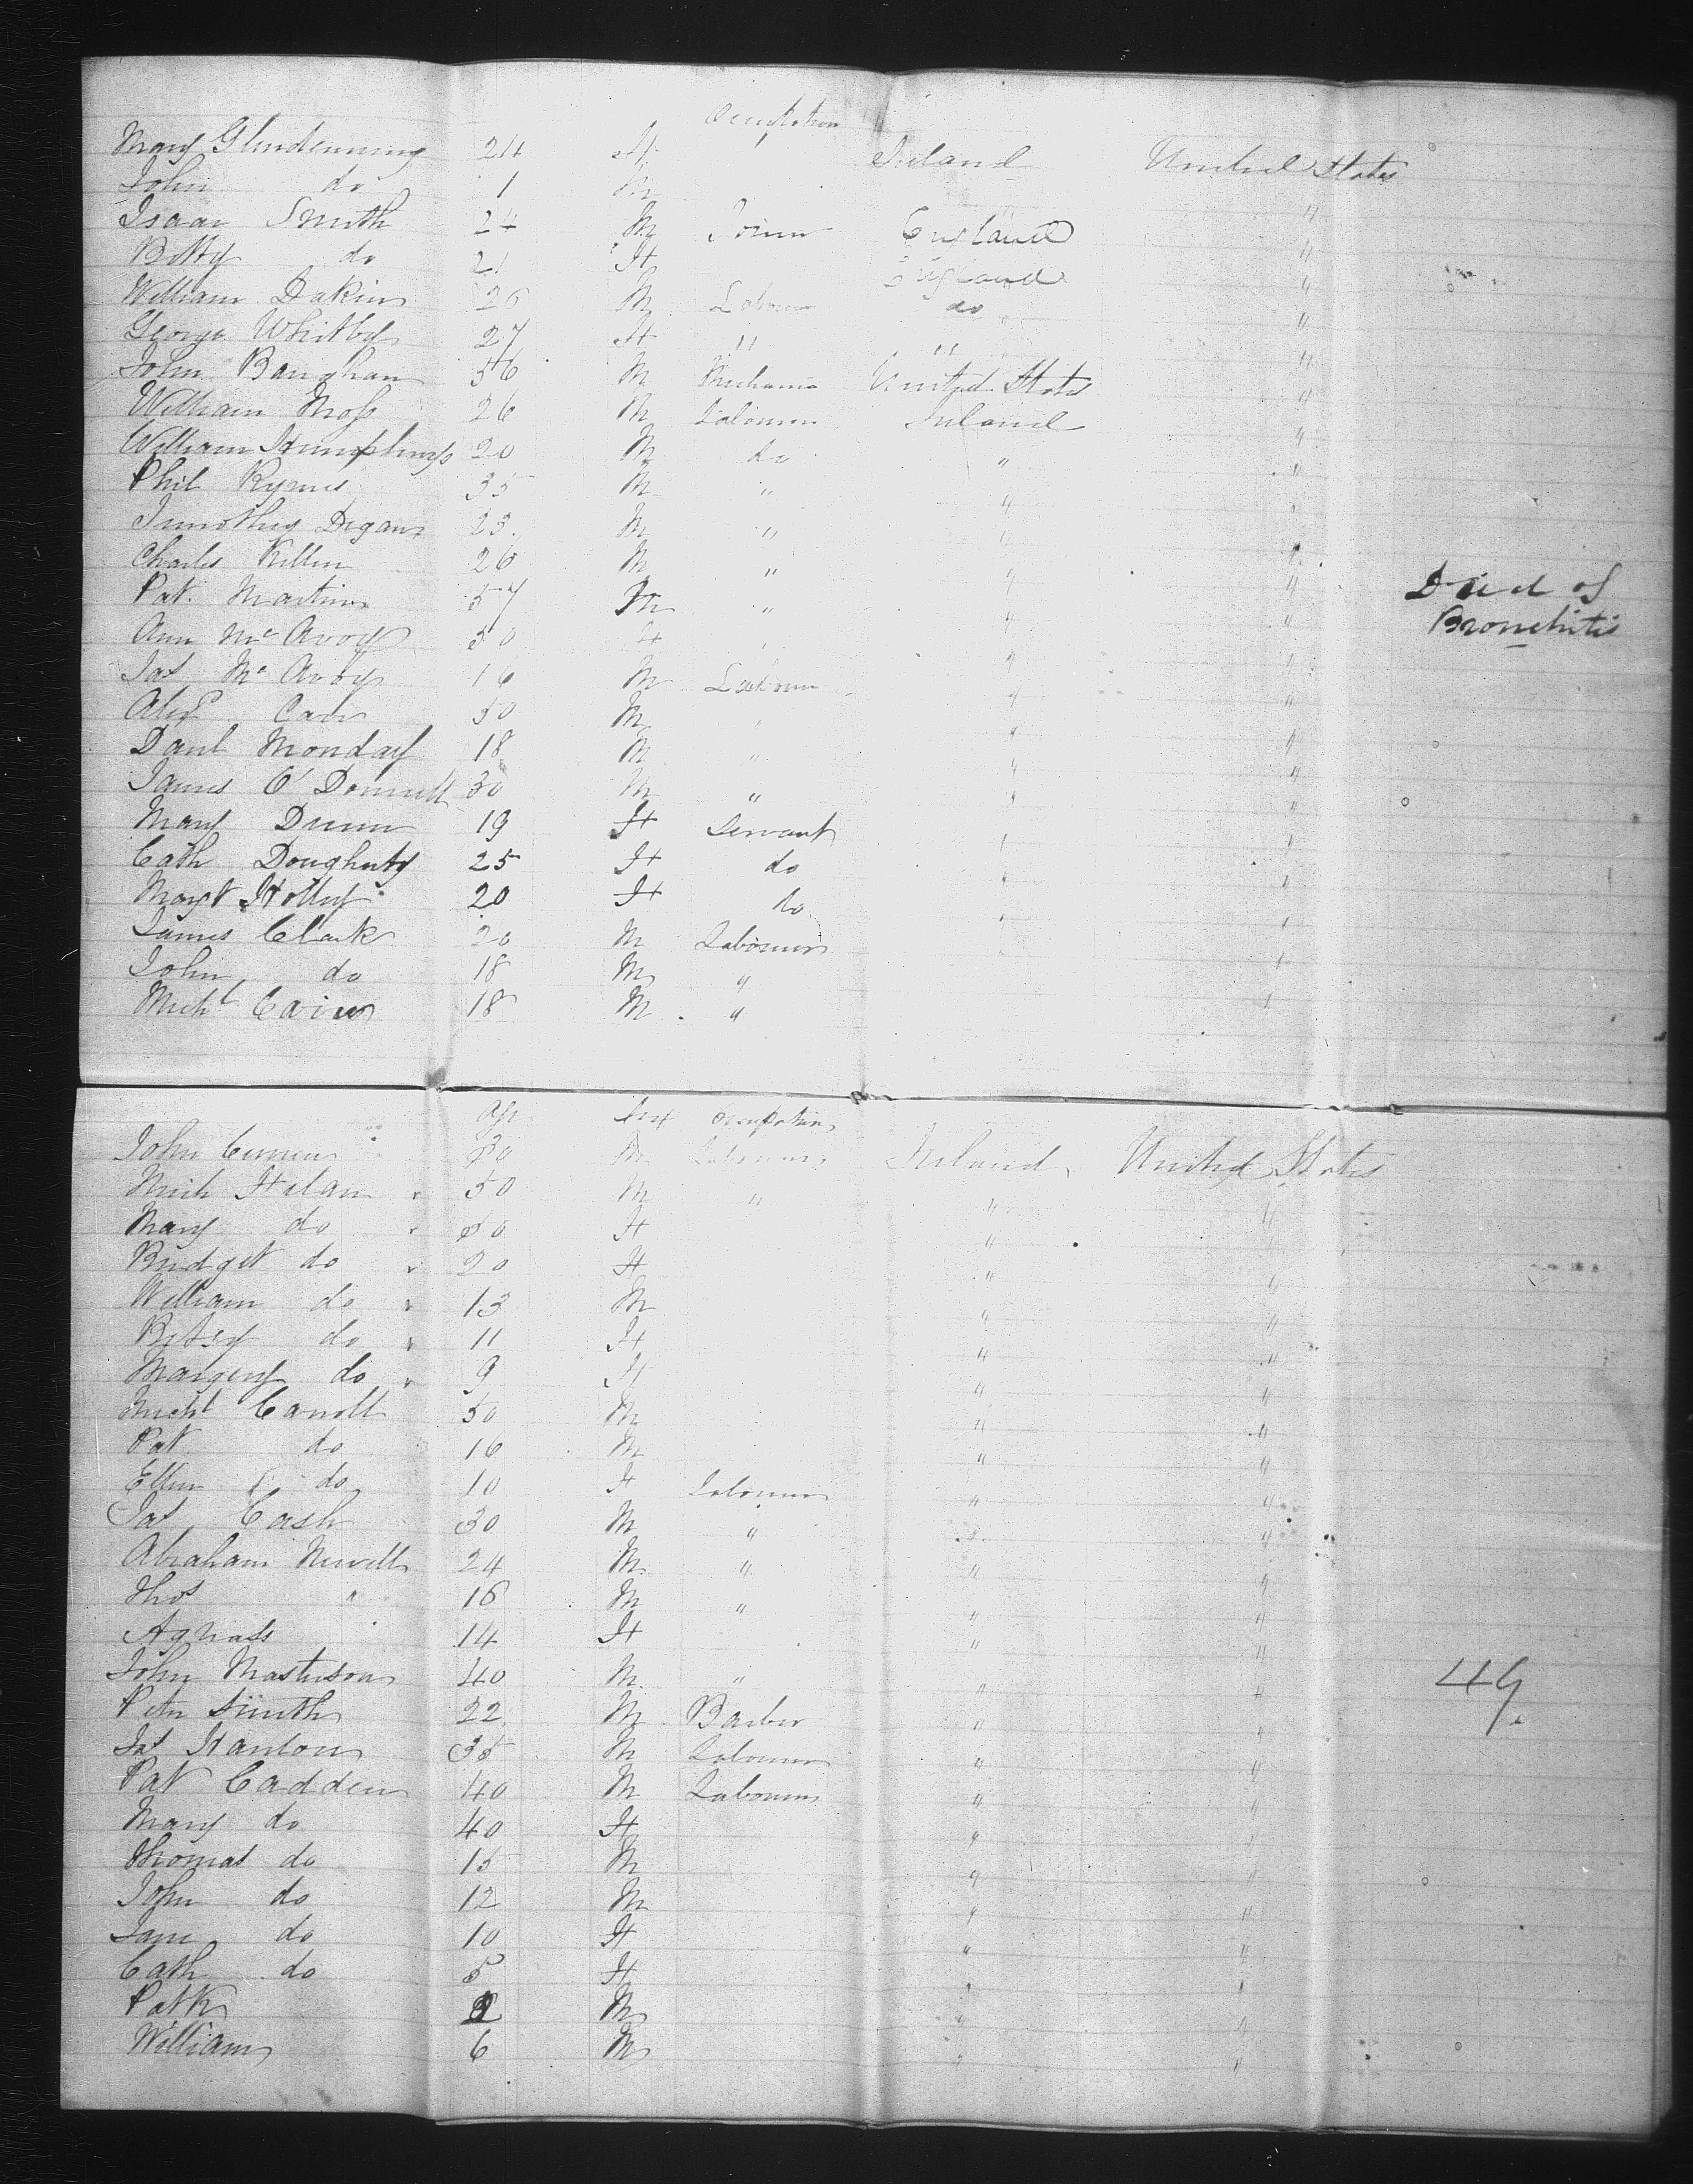 Occupation
Mary Glindenning 24 F Ireland United States
John do 1 M "
Isaac Smith 24 M Joiner England "
Betty do 21 F England "
William Dakin 26 M Labourer do "
George Whitby 27 F " " "
John Baughan 36 M Mechanic United States "
William Moss 26 M Labourer Ireland "
William Humphreys 20 M do " "
Phil Rymes 35 M " " "
Timothy Degan 23 M " " "
Charles Killen 26 M " " "
Pat. Martin 37 M " " " Died of
Ann McAvoy 30 F " " Bronchitis
Jas McAvoy 16 M Labour " "
Alexr Carr 30 M " " "
Danl Monday 18 M " " "
James O'Donnell 30 M " " "
Mary Dunn 19 F Servant " "
Cath Dougherty 25 F do " "
Margt Holly 20 F do " "
James Clark 20 M Labourer "
John do 18 M " "
Michl Cain 18 M " "
Age Sex Occupation
John 30 M Labourer Ireland United States
Mich Helan 50 M " " "
Mary do 50 F "
Bridget do 20 F " "
William do 13 M " "
Betsy do 11 F " "
Margery do 9 F " "
Michl Carroll 50 M " "
Pat do 16 M " "
Ellen do 10 F Labourer " "
Jas Cash 30 M " " "
Abraham Newell 24 M " " "
Thos " 16 M " " "
Agnass 14 F " "
John Masterson 40 M " " " 49
Peter Smith 22 M Barber " "
Jas Hanlon 35 M Labourer " "
Pat Cadden 40 M Labourer " "
Mary do 40 F " "
Thomas do 15 M " "
John do 12 M " "
Jane do 10 F " "
Cath do 5 F " "
Patk M " "
William 6 M " "